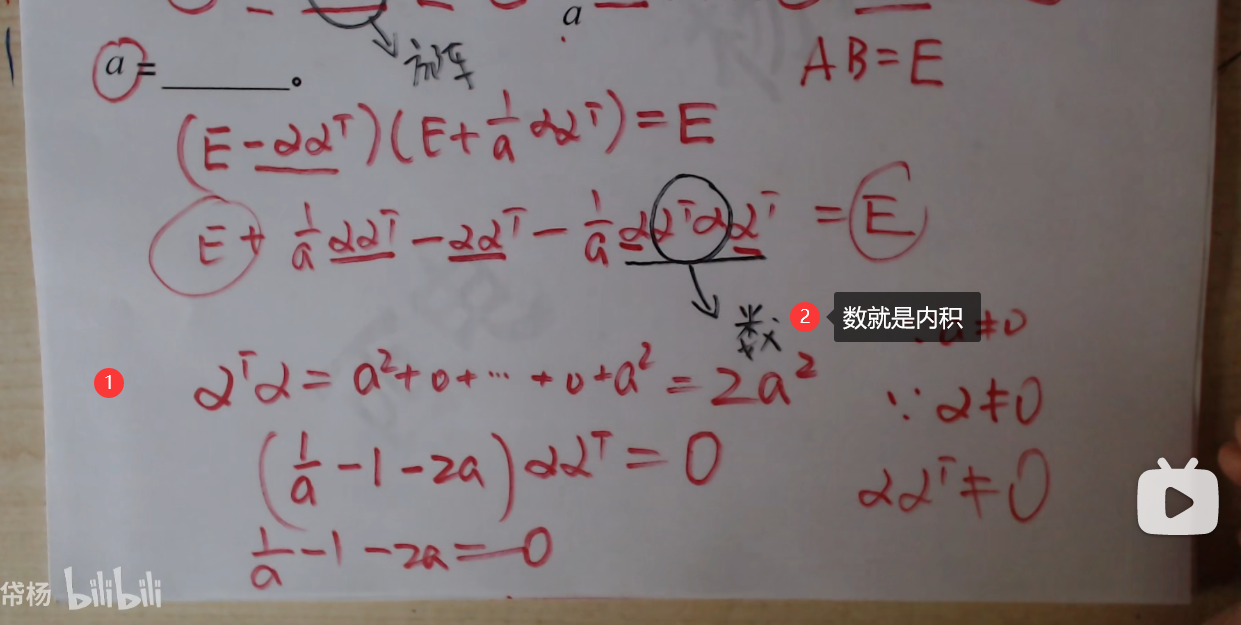 a
a = ______。
方阵
AB=E
(E-αα^T)(E+1/a αα^T)=E
E+ 1/a αα^T - αα^T - 1/a αα^Tαα^T = E
数
2
数就是内积
a≠0
1
α^Tα = a²+0+…+0+a² = 2a²
∵ α≠0
(1/a -1-2a) αα^T = 0
αα^T ≠ 0
1/a -1-2a=0
岱杨 bilibili